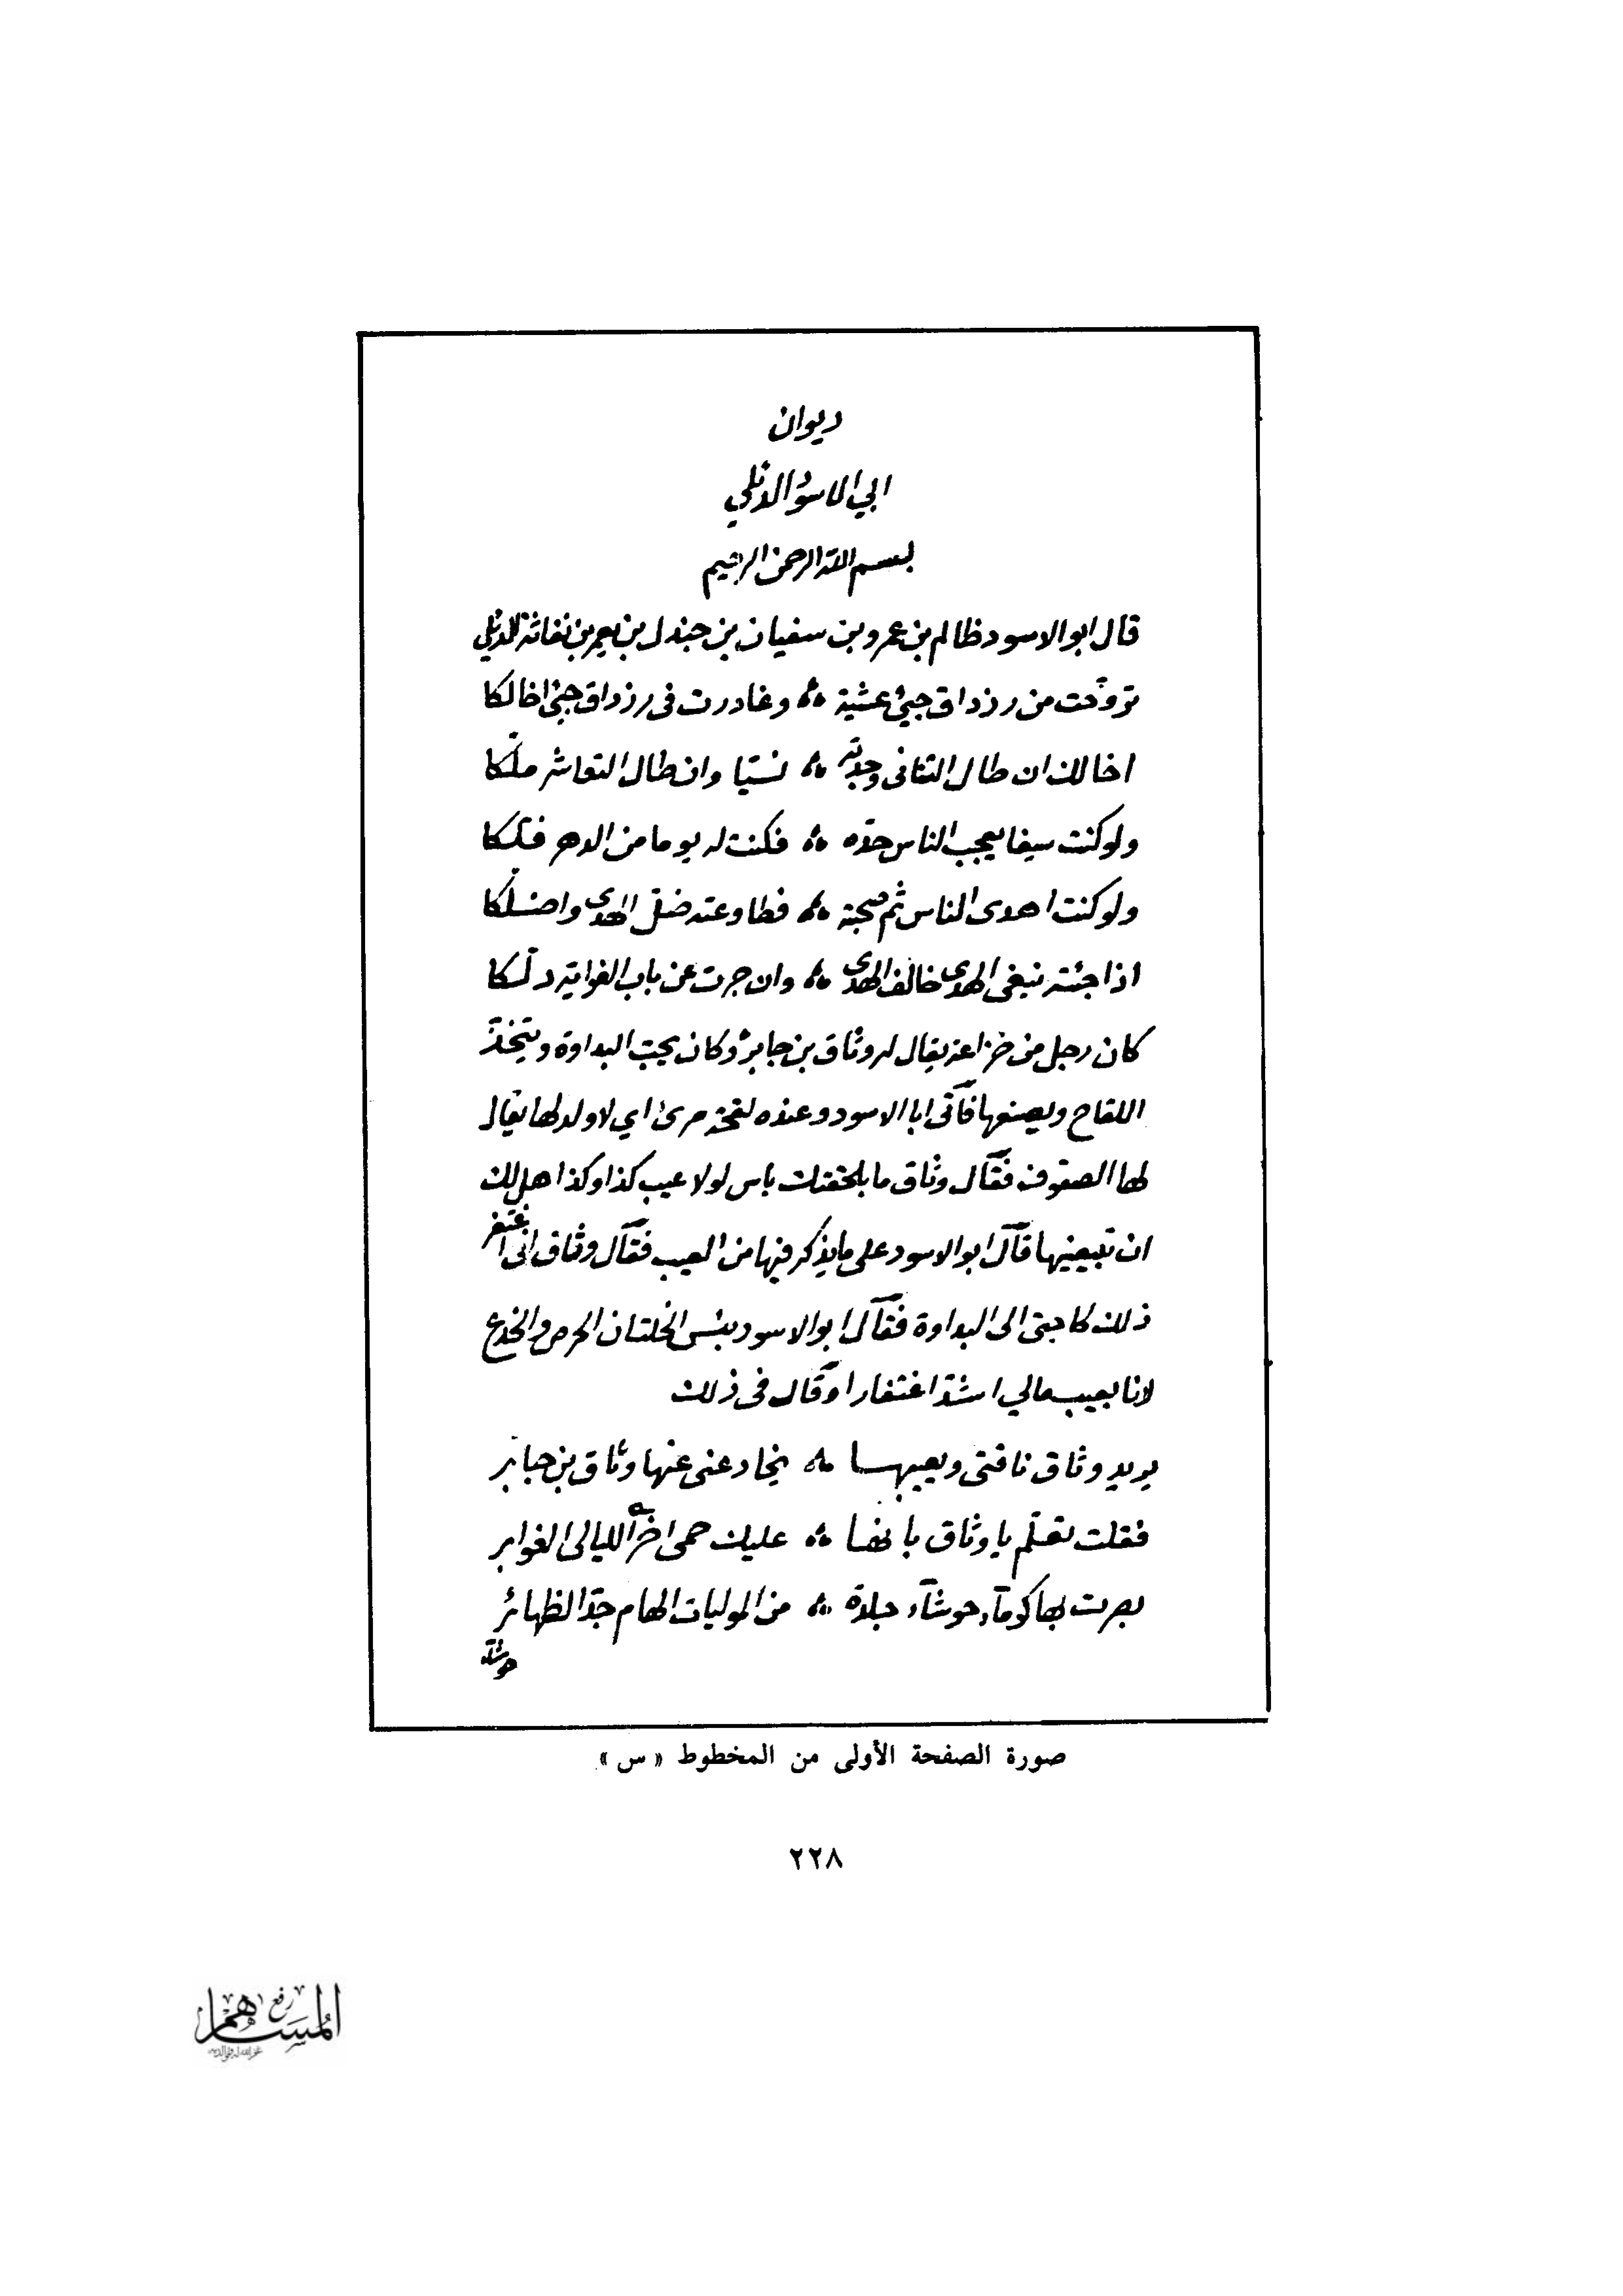 ديوان
ابي الاسود الدئلي
بسم الله الرحمن الرحيم
قال ابو الاسود ظالم بن عمرو بن سفيان بن جندل بن يعمر بن نفاثة الدئلي
تروّحت من رزداق جيّ عشية ؞ وغادرت في رزداق جيّ اخا لكا
اخا لك ان طال التنائي وجدته ؞ نسيّا وان طال التعاشر ملّكا
ولو كنت سيفا يعجب الناس حدّه ؞ فكنت له يوما من الدهر فلّكا
ولو كنت اهدى الناس ثم صحبته ؞ فطاوعته ضلّ الهدى واضلّكا
اذا جئته تبغي الهدى خالف الهدى ؞ وان جرت عن باب الغواية دلّكا
كان رجل من خزاعة يقال له وثاق بن جابر وكان يحب البداوة ويتخذ
اللقاح ويصنعها فأتى ابا الاسود وعنده لقحة مرئ اي لا ولد لها يقال
لها الصفوف فقال وثاق ما بلقحتك باس لولا عيب كذا وكذا هل لك
ان تبيعنيها قال ابو الاسود على ما يذكر فيها من العيب فقال وثاق اني اغتفر
ذلك لحاجتي الى البداوة فقال ابو الاسود بئس الخلتان الحرص والخدع
لانا بعيب مالي اشدّ اغتفارا وقال في ذلك
يريد وثاق ناقتي ويعيبهـــا ؞ يخادعني عنها وثاق بن جابر
فقلت تعلّم يا وثاق بانهـا ؞ عليك حمى اخرى الليالي الغوابر
بصرت بها كوماء حوشاء جلدة ؞ من الموليات الهام حدّ الظهائر
حوشاء
صورة الصفحة الأولى من المخطوط « س »
٢٢٨
رفع
المساهم
غفر الله له ولوالديه